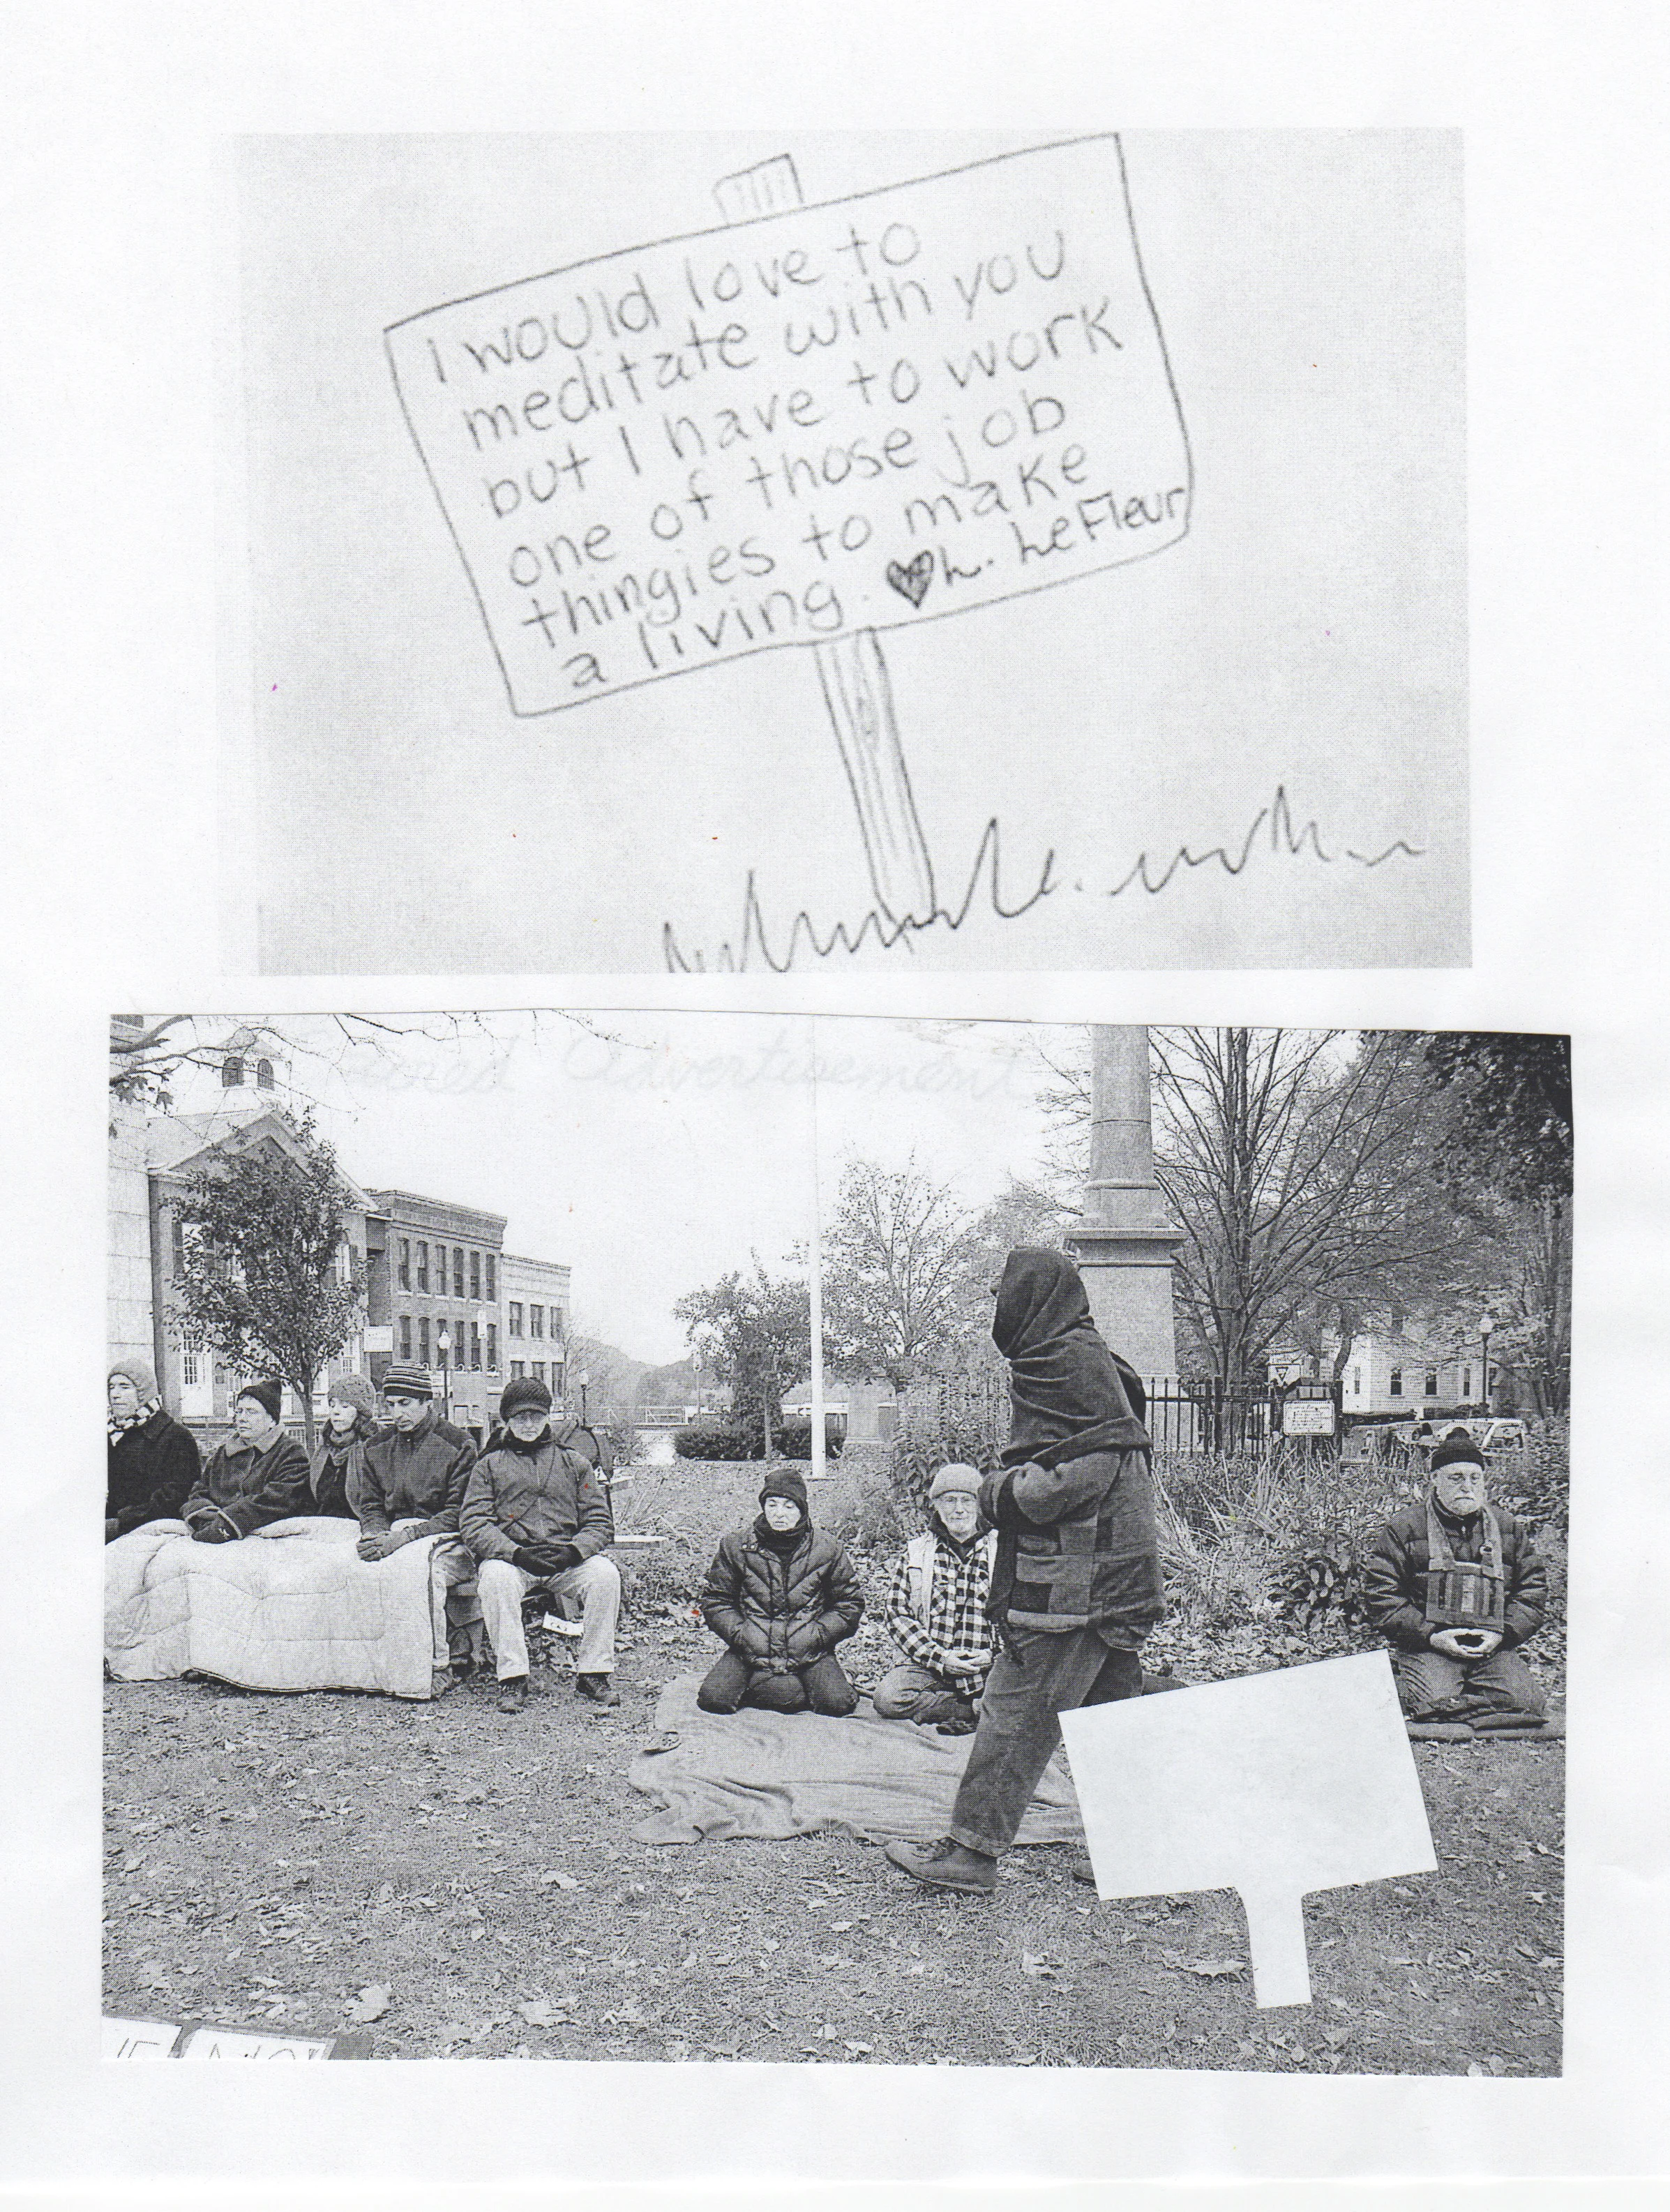 I would love to
meditate with you
but I have to work
one of those job
thingies to make
a living. ♥ L. LeFleur
Advertisement